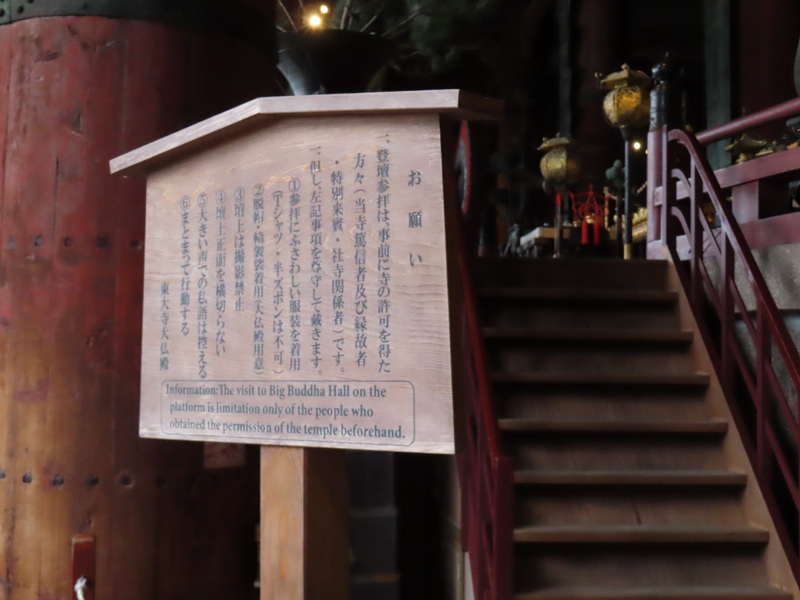 お願い
一、登壇参拝は、事前に寺の許可を得た
方々（当寺篤信者及び縁故者
・特別来賓・社寺関係者）です。
一、但し、左記事項を尊守して戴きます。
①参拝にふさわしい服装を着用
（Tシャツ・半ズボンは不可）
②脱帽・輪袈裟着用（大仏殿用意）
③壇上は撮影禁止
④壇上正面を横切らない
⑤大きい声での私語は控える
⑥まとまって行動する
東大寺大仏殿
Information:The visit to Big Buddha Hall on the
platform is limitation only of the people who
obtained the permission of the temple beforehand.